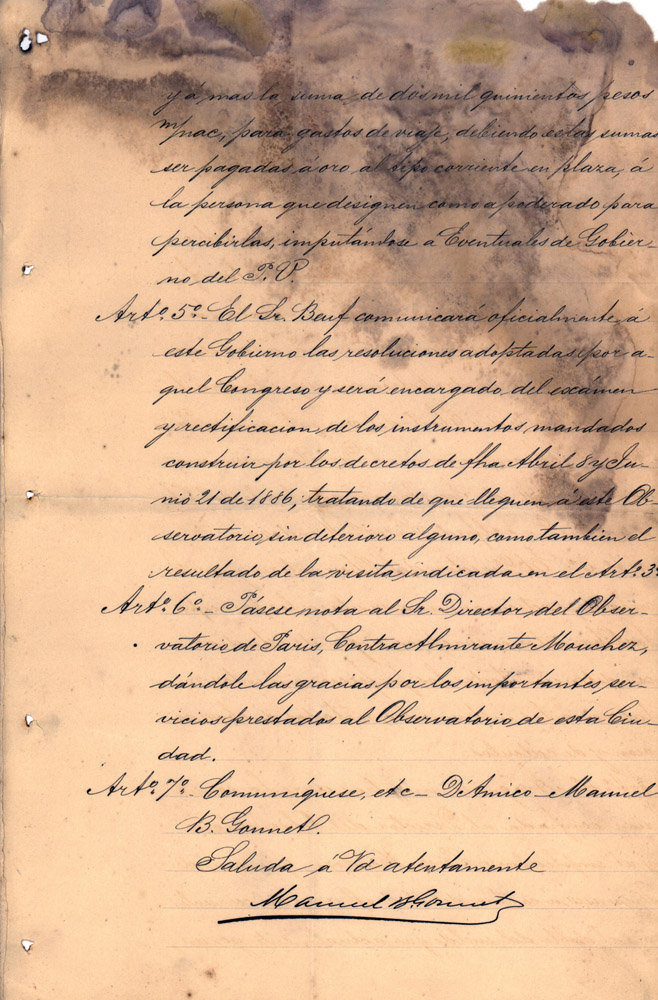 y á mas la suma de dos mil quinientos pesos
m/nac, para gastos de viaje, debiendo estas sumas
ser pagadas á oro al tipo corriente en plaza, á
la persona que designen como apoderado para
percibirlas, imputándose a Eventuales de Gobier-
no del P. P.
Artº. 5º.- El Sr. Beuf comunicará oficialmente á
este Gobierno las resoluciones adoptadas por a-
quel Congreso y será encargado del exámen
y rectificacion de los instrumentos mandados
construir por los decretos de fha Abril 8 y Ju-
nio 21 de 1886, tratando de que lleguen á este Ob-
servatorio sin deterioro alguno, como tambien el
resultado de la visita indicada en el Artº. 3º
Artº. 6º.- Pásese nota al Sr. Director del Obser-
vatorio de Paris, Contra Almirante Mouchez,
dándole las gracias por los importantes ser-
vicios prestados al Observatorio de esta Ciu-
dad.
Artº. 7º. Comuníquese, etc - D'Amico - Manuel
B. Gonnet.
Saluda á Vd atentamente
Manuel B. Gonnet